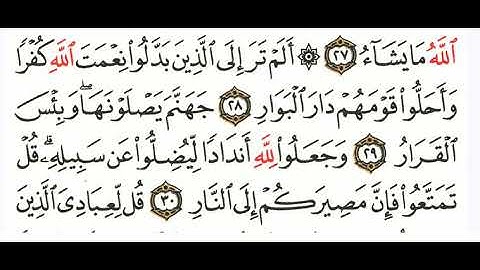 ٱللَّهُ مَا يَشَآءُ ٢٧ ۞ أَلَمۡ تَرَ إِلَى ٱلَّذِينَ بَدَّلُواْ نِعۡمَتَ ٱللَّهِ كُفۡرٗا
وَأَحَلُّواْ قَوۡمَهُمۡ دَارَ ٱلۡبَوَارِ ٢٨ جَهَنَّمَ يَصۡلَوۡنَهَاۖ وَبِئۡسَ
ٱلۡقَرَارُ ٢٩ وَجَعَلُواْ لِلَّهِ أَندَادٗا لِّيُضِلُّواْ عَن سَبِيلِهِۦۗ قُلۡ
تَمَتَّعُواْ فَإِنَّ مَصِيرَكُمۡ إِلَى ٱلنَّارِ ٣٠ قُل لِّعِبَادِيَ ٱلَّذِينَ